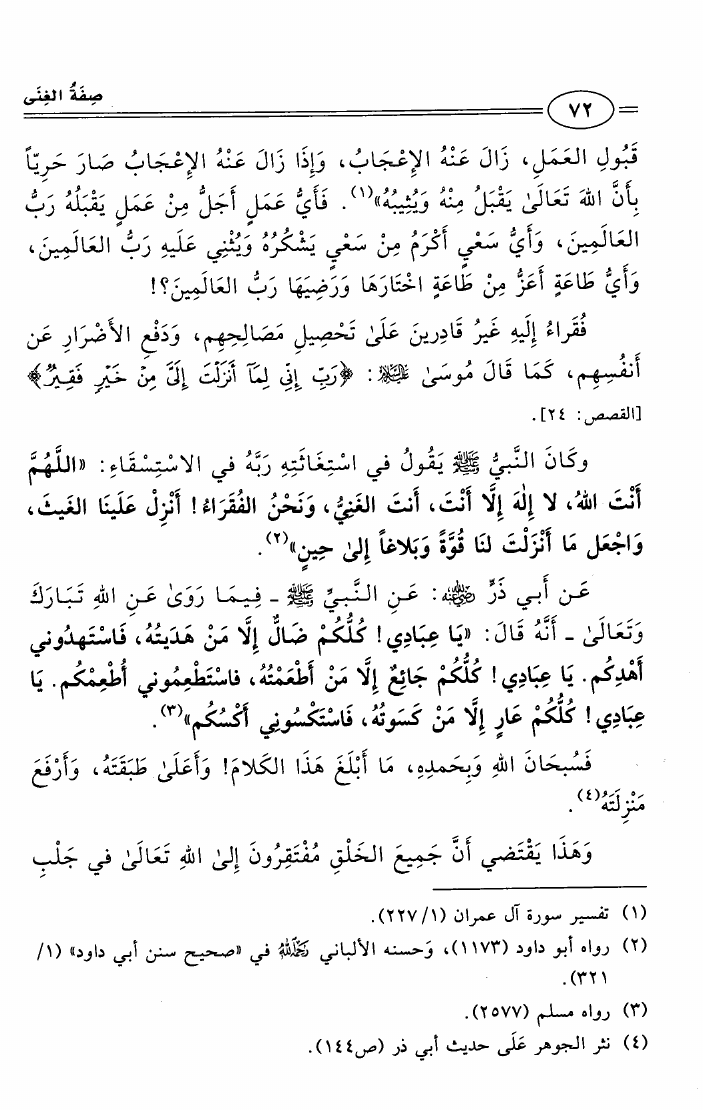 صِفَةُ الغِنَى
٧٢
قَبُولِ العَمَلِ، زَالَ عَنْهُ الإِعْجَابُ، وَإِذَا زَالَ عَنْهُ الإِعْجَابُ صَارَ حَرِيّاً
بِأَنَّ اللهَ تَعَالَىٰ يَقْبَلُ مِنْهُ وَيُثِيبُهُ»(١). فَأَيُّ عَمَلٍ أَجَلُّ مِنْ عَمَلٍ يَقْبَلُهُ رَبُّ
العَالَمِينَ، وَأَيُّ سَعْيٍ أَكْرَمُ مِنْ سَعْيٍ يَشْكُرُهُ وَيُثْنِي عَلَيهِ رَبُّ العَالَمِينَ،
وَأَيُّ طَاعَةٍ أَعَزُّ مِنْ طَاعَةٍ اخْتَارَهَا وَرَضِيَهَا رَبُّ العَالَمِينَ؟!
فُقَرَاءُ إِلَيهِ غَيرُ قَادِرِينَ عَلَىٰ تَحْصِيلِ مَصَالِحِهِم، وَدَفْعِ الأَضْرَارِ عَن
أَنفُسِهِم، كَمَا قَالَ مُوسَىٰ ﵇: ﴿رَبِّ إِنِّي لِمَآ أَنزَلْتَ إِلَيَّ مِنْ خَيْرٍ فَقِيرٌ﴾
[القصص: ٢٤].
وكَانَ النَّبِيُّ ﷺ يَقُولُ في اسْتِغَاثَتِهِ رَبَّهُ في الاسْتِسْقَاءِ: «اللَّهُمَّ
أَنْتَ اللهُ، لا إِلٰهَ إِلَّا أَنْتَ، أَنتَ الغَنِيُّ، وَنَحْنُ الفُقَرَاءُ! أَنْزِلْ عَلَينَا الغَيثَ،
وَاجْعَل مَا أَنْزَلْتَ لنَا قُوَّةً وَبَلاغاً إِلىٰ حِينٍ»(٢).
عَن أَبي ذَرٍّ ﵁: عَنِ النَّبيِّ ﷺ ـ فِيمَا رَوَىٰ عَنِ اللهِ تَبَارَكَ
وَتَعَالَىٰ ـ أَنَّهُ قَالَ: «يَا عِبَادِي! كُلُّكُمْ ضَالٌّ إِلَّا مَنْ هَدَيتُهُ، فَاسْتَهدُوني
أَهْدِكُم. يَا عِبَادِي! كُلُّكُمْ جَائِعٌ إِلَّا مَنْ أَطْعَمْتُهُ، فَاسْتَطْعِمُوني أُطْعِمْكُم. يَا
عِبَادِي! كُلُّكُمْ عَارٍ إِلَّا مَنْ كَسَوتُهُ، فَاسْتَكْسُونِي أَكْسُكُم»(٣).
فَسُبحَانَ اللهِ وَبِحَمدِهِ، مَا أَبْلَغَ هَذَا الكَلامَ! وَأَعلَىٰ طَبَقَتَهُ، وَأَرْفَعَ
مَنْزِلَتَهُ(٤).
وَهَذَا يَقْتَضي أَنَّ جَمِيعَ الخَلْقِ مُفْتَقِرُونَ إِلىٰ اللهِ تَعَالَىٰ في جَلْبِ
(١) تفسير سورة آل عمران (١/ ٢٢٧).
(٢) رواه أبو داود (١١٧٣)، وَحسنه الألباني ﵀ في «صحيح سنن أبي داود» (١/
٣٢١).
(٣) رواه مسلم (٢٥٧٧).
(٤) نثر الجوهر عَلَى حديث أبي ذر (ص١٤٤).